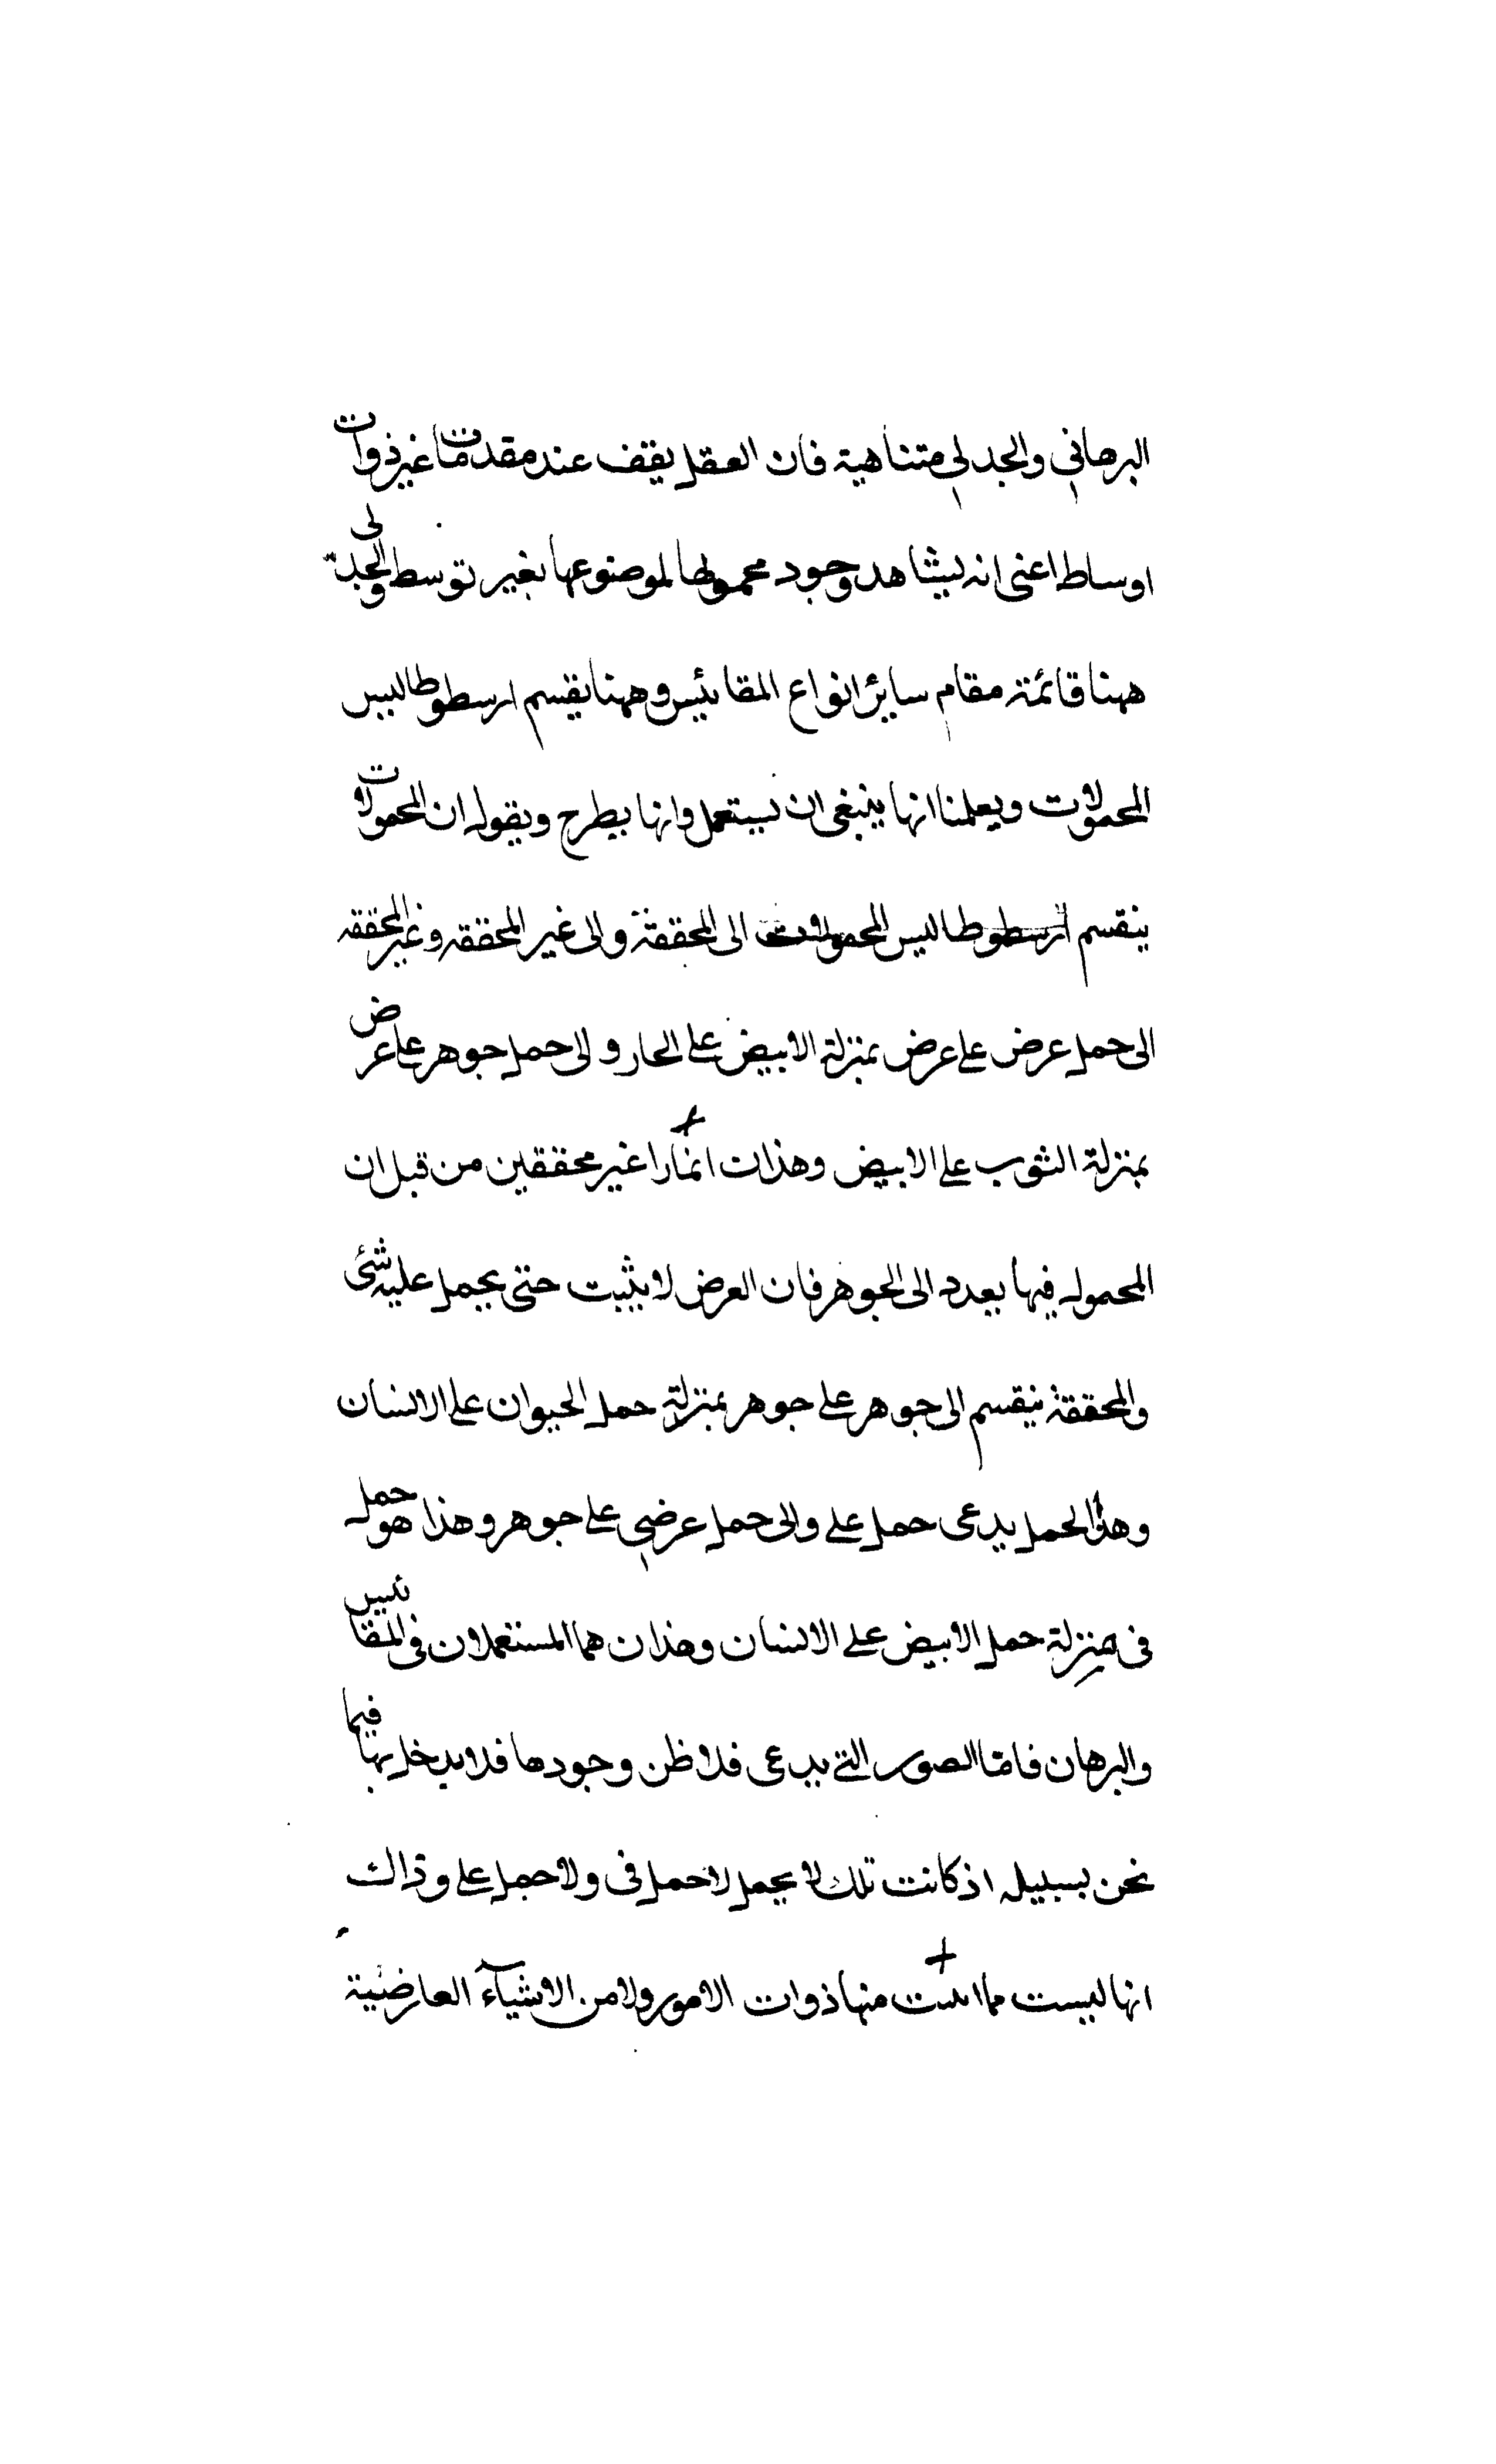 البرهاني والجدلي متناهية فان العقل يقف عند مقدمات ما غير ذوات
اوساط اعنى انه يشاهد وجود محمولها لموضوعها بغير توسط والجدلية
ههنا قائمة مقام ساير انواع المقائيس وههنا يقسم ارسطوطاليس
المحمولات ويعلمنا انها ينبغى ان يستعمل وانها يطرح ويقول ان المحمولات
ينقسم ارسطوطاليس المحمولات الى المحققة والى غير المحققه وغير المحققه
الى حمل عرض على عرض بمنزلة الابيض على الحار والى حمل جوهر على عرض
بمنزلة الثوب على الابيض وهذات انما را غير محققين من قبل ان
المحمول فيها بعدد الى الجوهر فان العرض لا يثبت حتى يحمل عليه شئ
والمحققة ينقسم الى جوهر على جوهر بمنزلة حمل الحيوان على الانسان
وهذا الحمل يدعى حمل على والى حمل عرضي على جوهر وهذا هو حمل
فى بمنزلة حمل الابيض على الانسان وهذان هما المستعملان فى المقائيس
والبرهان فاما الصور التى يدعى فلاظن وجودها فلا يدخل بها فيما
نحن بسبيله اذ كانت تلك لا يحمل لا حمل فى ولا حمل على وذاك
انها ليست مما منها ذوات الامور ولا من الاشياء العارضية